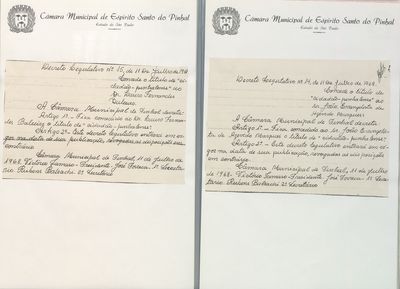 Câmara Municipal de Espírito Santo do Pinhal
Estado de São Paulo
Decreto Legislativo Nº 15, de 11 de Julho de 1968
Concede o título de "ci-
dadão-pinhalense" ao
Sr. Lauro Fernandes
A Câmara Municipal de Pinhal decreta:
Artigo 1º - Fica concedido ao Sr. Lauro Fernan-
des o título de "cidadão-pinhalense".
Artigo 2º - Este decreto legislativo entrará em vi-
gor na data de sua publicação, revogadas as disposições em
contrário.
Câmara Municipal de Pinhal, 11 de julho
de 1968. Presidente. José 1º Secretá-
rio. 2º Secretário
Câmara Municipal de Espírito Santo do Pinhal
Estado de São Paulo
Decreto Legislativo Nº 14, de 11 de Julho de 1968.
Concede o título de
"cidadão pinhalense" ao
Sr. João Evangelista de
A Câmara Municipal de Pinhal decreta:
Artigo 1º - Fica concedido ao Sr. João Evangelis-
ta de o título de "cidadão pinhalense".
Artigo 2º - Este decreto legislativo entrará em vi-
gor na data de sua publicação, revogadas as disposições
em contrário.
Câmara Municipal de Pinhal, 11 de julho de
1968 - Presidente. José 1º Secre-
tário. 2º Secretário